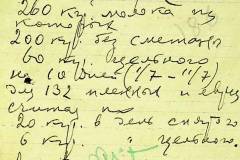 260 кгр. молока из
которых
200 кгр. без сметаны
60 кгр. цельного
на 10 дней (1/7 – 11/7)
для 132 пленных и евреев
считая по
20 кгр. в день снятого
6 кгр. " цельного.